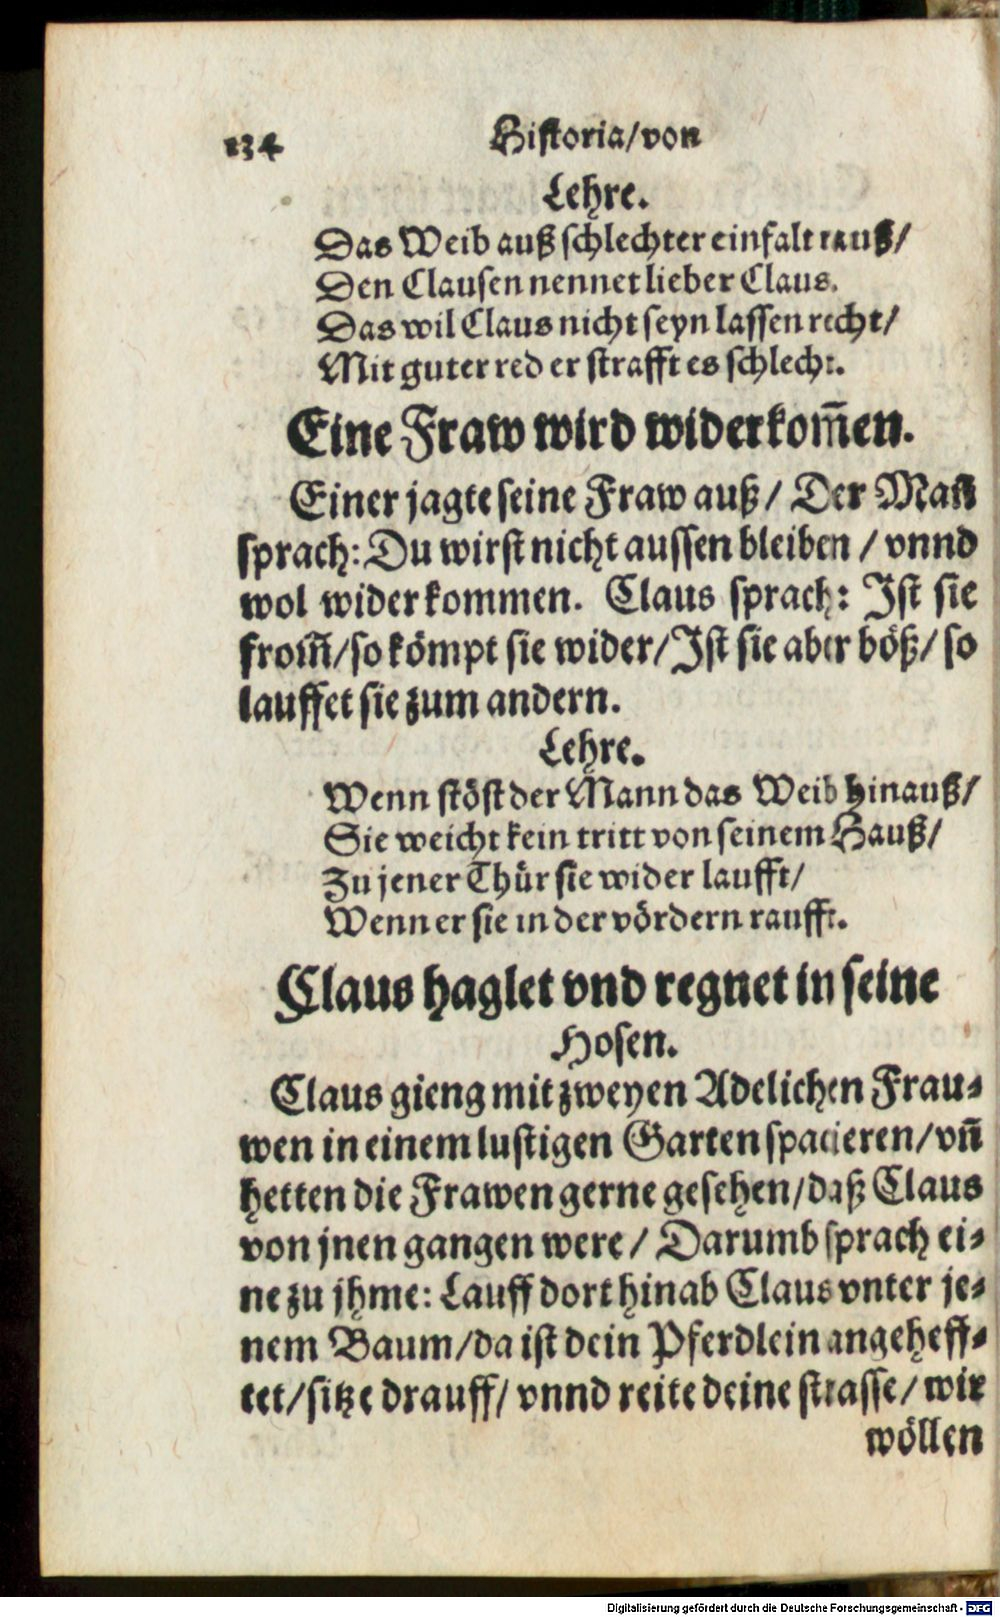 134 Historia/von
Lehre.
Das Weib auß schlechter einfalt rauß/
Den Clausen nennet lieber Claus.
Das wil Claus nicht seyn lassen recht/
Mit guter red er strafft es schlecht.
Eine Fraw wird widerkom̃en.
Einer jagte seine Fraw auß/ Der Mañ
sprach: Du wirst nicht aussen bleiben / vnnd
wol widerkommen. Claus sprach: Ist sie
from̃/so kömpt sie wider/Ist sie aber böß/ so
lauffet sie zum andern.
Lehre.
Wenn stöst der Mann das Weib hinauß/
Sie weicht kein tritt von seinem Hauß/
Zu jener Thür sie wider laufft/
Wenn er sie in der vördern raufft.
Claus haglet vnd regnet in seine
Hosen.
Claus gieng mit zweyen Adelichen Frau-
wen in einem lustigen Garten spacieren/vñ
hetten die Frawen gerne gesehen/daß Claus
von jnen gangen were/ Darumb sprach ei-
ne zu jhme: Lauff dort hinab Claus vnter je-
nem Baum/da ist dein Pferdlein angeheff-
tet/sitze drauff/ vnnd reite deine strasse/ wir
wöllen
Digitalisierung gefördert durch die Deutsche Forschungsgemeinschaft - DFG